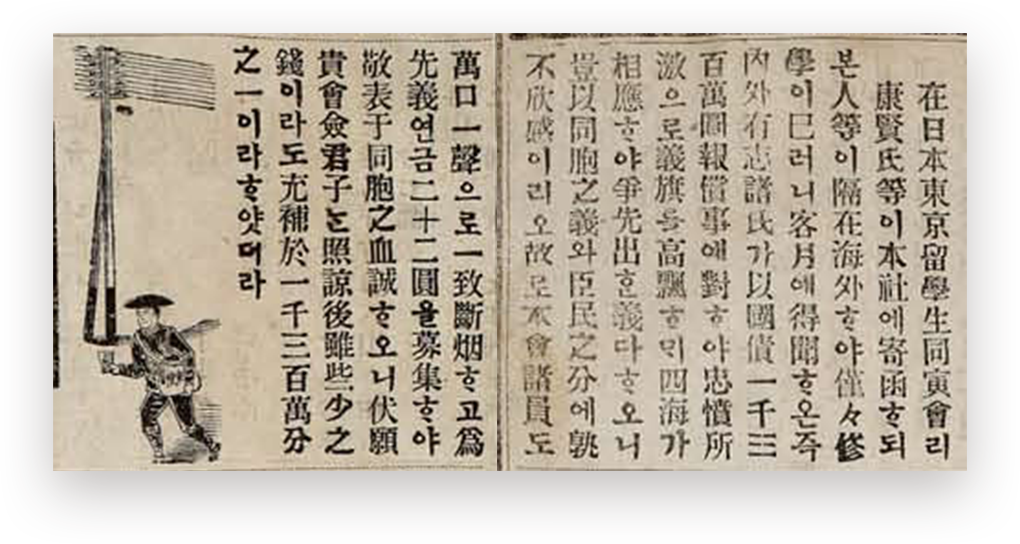 在日本東京留學生同寅會리
康賢氏等이本社에寄函ᄒᆞ되
본人等이隔在海外ᄒᆞ야僅々修
學이已러니客月에得聞ᄒᆞ온즉
內外有志諸氏가以國債一千三
百萬圜報償事에對ᄒᆞ야忠憤所
激으로義旗를高飄ᄒᆞᄆᆡ四海가
相應ᄒᆞ야爭先出ᄒᆞᆫ義다ᄒᆞ오니
豈以同胞之義와臣民之分에孰
不欣感이리오故로本會諸員도
萬口一聲으로一致斷烟ᄒᆞ고爲
先義연금二十二圓을募集ᄒᆞ야
敬表于同胞之血誠ᄒᆞ오니伏願
貴會僉君子ᄂᆞᆫ照諒後雖些少之
錢이라도充補於一千三百萬分
之一이라ᄒᆞ얏더라